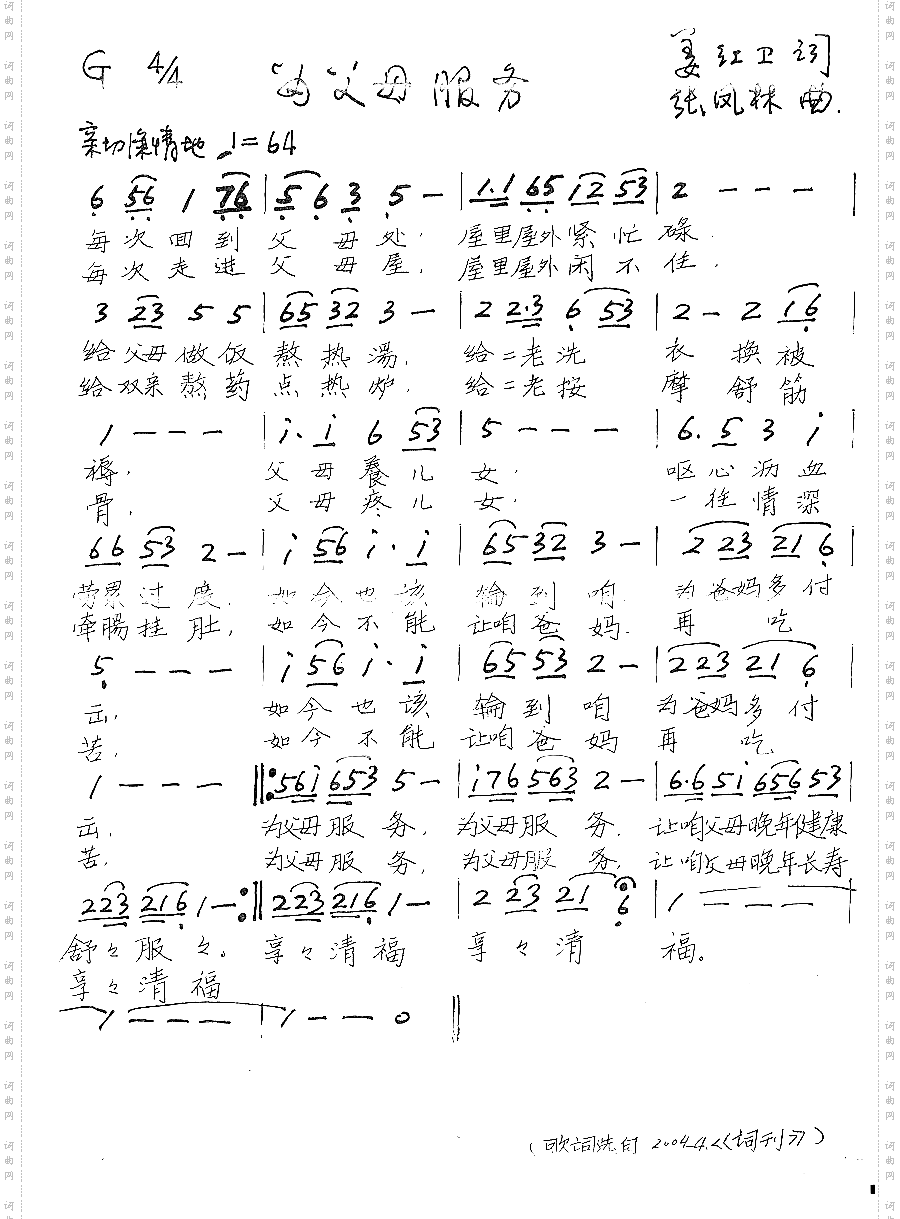 G 4/4
为父母服务
姜红卫 词
张凤林 曲.
亲切深情地 ♩=64
6 56 1 76 | 5 6 3 5 — | 1.1 65 12 53 | 2 — — — |
每次回到父母处, 屋里屋外紧忙碌.
每次走进父母屋, 屋里屋外闲不住.
3 23 5 5 | 65 32 3 — | 2 2.3 6 53 | 2 — 2 16 |
给父母做饭熬热湯, 给二老洗衣换被
给双亲熬药点热炉, 给二老按摩舒筋
1 — — — | i. i 6 53 | 5 — — — | 6. 5 3 i
褥, 父母養儿女, 呕心沥血
骨, 父母疼儿女, 一往情深
66 53 2 — | i 56 i. i | 65 32 3 — | 2 23 21 6 |
劳累过度. 如今也该轮到咱 为爸妈多付
牵腸挂肚, 如今不能让咱爸妈. 再吃
5 — — — | i 56 i. i | 65 53 2 — | 2 23 21 6 |
出, 如今也该轮到咱 为爸妈多付
苦, 如今不能让咱爸妈 再吃
1 — — — ‖: 56i 653 5 — | i76 563 2 — | 6.6 5i 656 53 |
出, 为父母服务, 为父母服务. 让咱父母晚年健康
苦, 为父母服务, 为父母服务, 让咱父母晚年长寿
223 216 1 — :‖ 223 216 1 — | 2 23 21 6 | 1 — — —
舒々服々。享々清福 享々清福。
享々清福
1 — — — | 1 — — 0 ‖
(歌词选自 2004.4.《词刊》)
词曲网